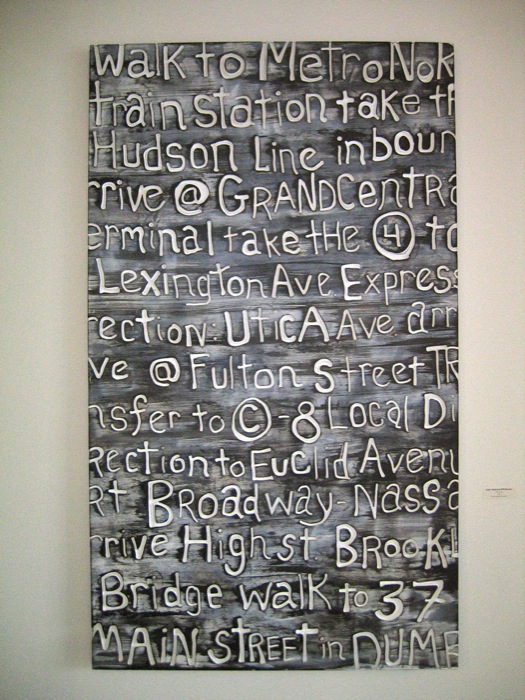 Walk to MetroNoR
train station take th
Hudson Line inboun
rrive @ GRANDCENTRA
erminal take tHe 4 to
Lexington Ave Express
rection: UticA Ave arr
ve @ Fulton Street TR
nsfer to C-8 Local Di
Rection to Euclid Avenu
Rt Broadway-Nassa
rrive High st. BRooKL
Bridge walk to 37
MAiN STREET in DUMB